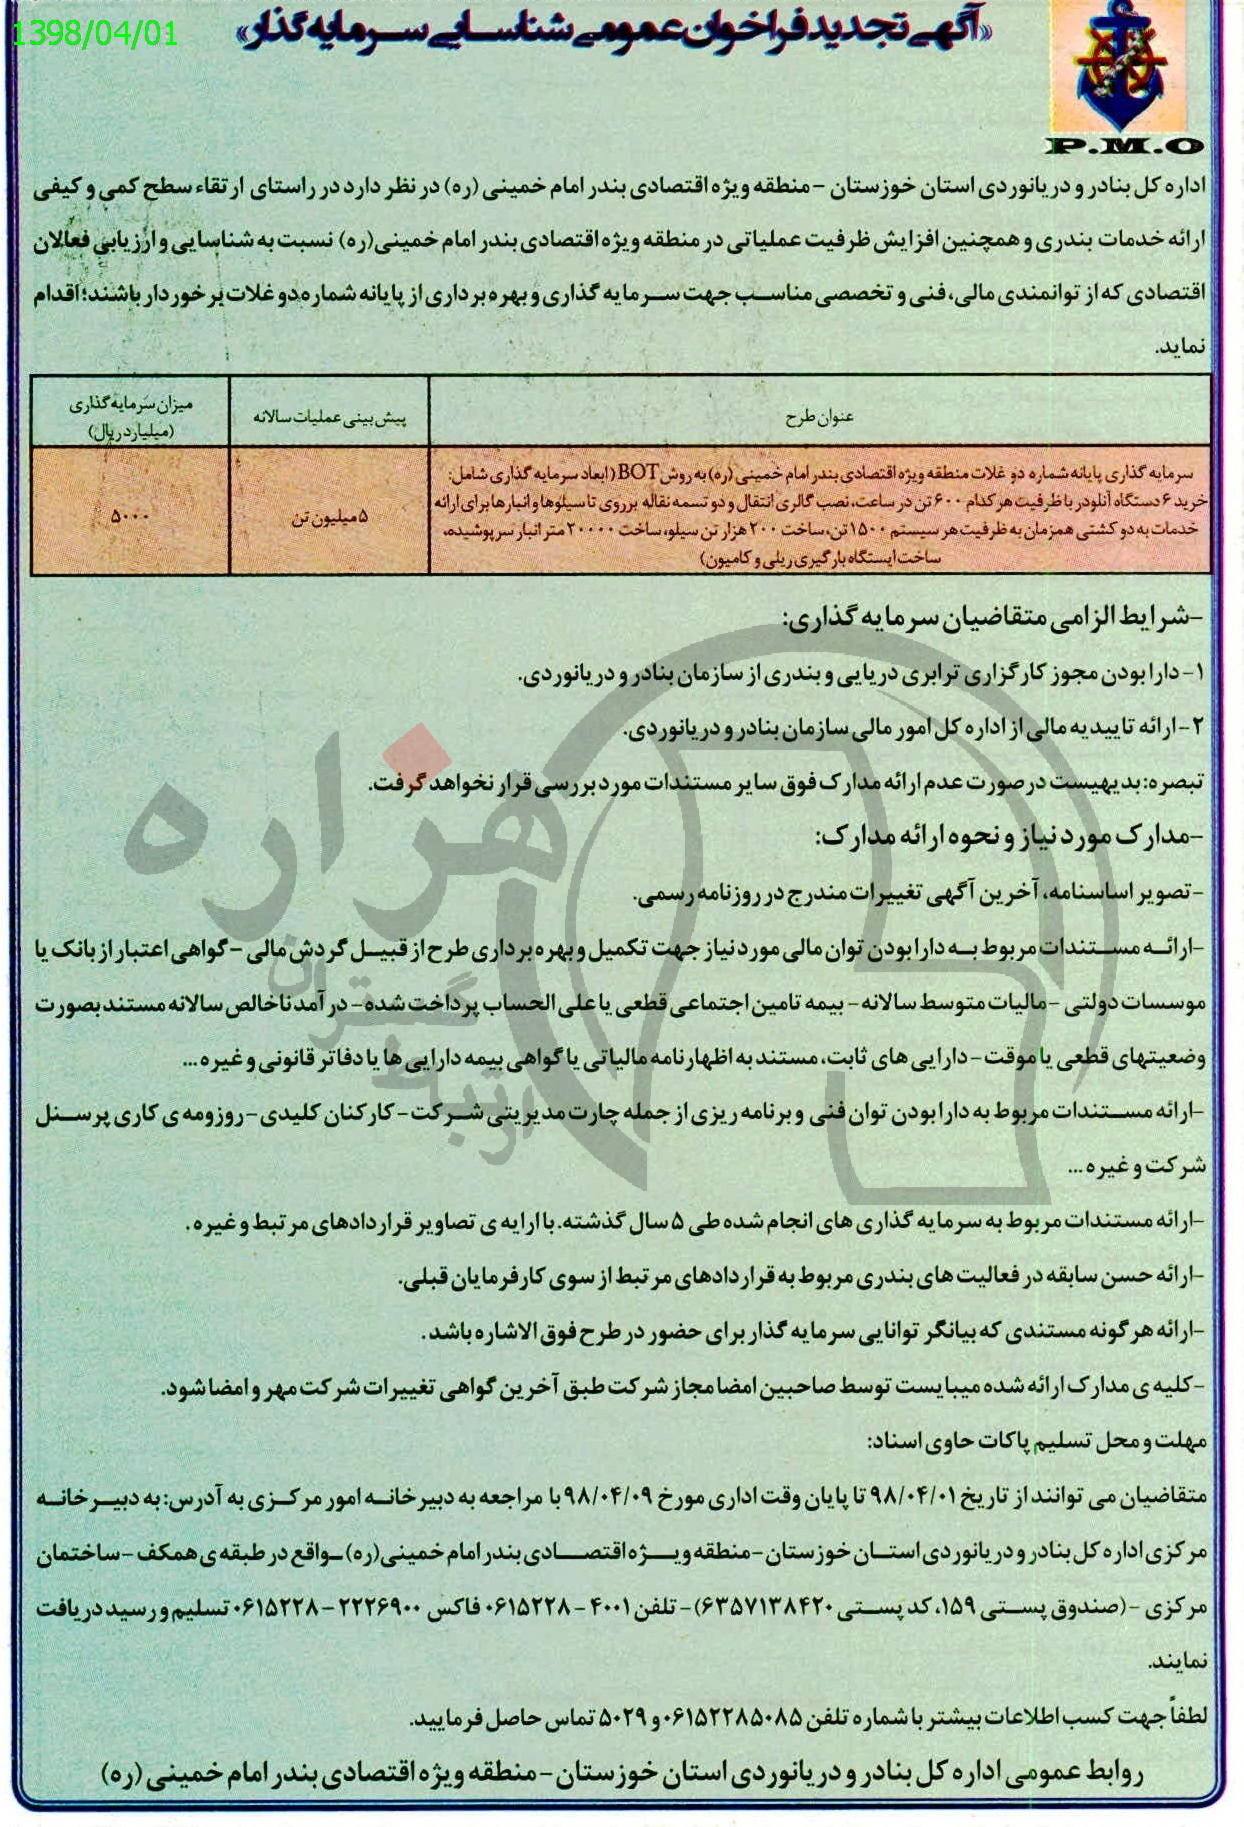 1398/04/01
«آگهی تجدید فراخوان عمومی شناسایی سرمایه گذار»
P.M.O
اداره کل بنادر و دریانوردی استان خوزستان -منطقه ویژه اقتصادی بندر امام خمینی (ره) در نظر دارد در راستای ارتقاء سطح کمی و کیفی
ارائه خدمات بندری و همچنین افزایش ظرفیت عملیاتی در منطقه ویژه اقتصادی بندر امام خمینی(ره) نسبت به شناسایی و ارزیابی فعالان
اقتصادی که از توانمندی مالی، فنی و تخصصی مناسب جهت سرمایه گذاری و بهره برداری از پایانه شماره دو غلات برخوردار باشند؛ اقدام
نماید.
عنوان طرح
پیش بینی عملیات سالانه
میزان سرمایه گذاری
(میلیارد ریال)
سرمایه گذاری پایانه شماره دو غلات منطقه ویژه اقتصادی بندر امام خمینی (ره) به روش BOT (ابعاد سرمایه گذاری شامل:
خرید ۶ دستگاه آنلودر با ظرفیت هر کدام ۶۰۰ تن در ساعت، نصب گالری انتقال و دو تسمه نقاله بر روی تا سیلوها و انبارها برای ارائه
خدمات به دو کشتی همزمان به ظرفیت هر سیستم ۱۵۰۰ تن، ساخت ۲۰۰ هزار تن سیلو، ساخت ۲۰۰۰۰ متر انبار سرپوشیده،
ساخت ایستگاه بارگیری ریلی و کامیون)
۵ میلیون تن
۵۰۰۰
-شرایط الزامی متقاضیان سرمایه گذاری:
۱- دارا بودن مجوز کارگزاری ترابری دریایی و بندری از سازمان بنادر و دریانوردی.
۲- ارائه تاییدیه مالی از اداره کل امور مالی سازمان بنادر و دریانوردی.
تبصره: بدیهیست در صورت عدم ارائه مدارک فوق سایر مستندات مورد بررسی قرار نخواهد گرفت.
-مدارک مورد نیاز و نحوه ارائه مدارک:
-تصویر اساسنامه، آخرین آگهی تغییرات مندرج در روزنامه رسمی.
-ارائه مستندات مربوط به دارا بودن توان مالی مورد نیاز جهت تکمیل و بهره برداری طرح از قبیل گردش مالی -گواهی اعتبار از بانک یا
موسسات دولتی -مالیات متوسط سالانه- بیمه تامین اجتماعی قطعی یا علی الحساب پرداخت شده- درآمد ناخالص سالانه مستند بصورت
وضعیتهای قطعی یا موقت- دارایی های ثابت، مستند به اظهارنامه مالیاتی یا گواهی بیمه دارایی ها یا دفاتر قانونی و غیره...
-ارائه مستندات مربوط به دارا بودن توان فنی و برنامه ریزی از جمله چارت مدیریتی شرکت- کارکنان کلیدی- روزومه ی کاری پرسنل
شرکت و غیره...
-ارائه مستندات مربوط به سرمایه گذاری های انجام شده طی ۵ سال گذشته. با ارایه ی تصاویر قراردادهای مرتبط و غیره.
-ارائه حسن سابقه در فعالیت های بندری مربوط به قراردادهای مرتبط از سوی کارفرمایان قبلی.
-ارائه هرگونه مستندی که بیانگر توانایی سرمایه گذار برای حضور در طرح فوق الاشاره باشد.
-کلیه ی مدارک ارائه شده میبایست توسط صاحبین امضا مجاز شرکت طبق آخرین گواهی تغییرات شرکت مهر و امضا شود.
مهلت و محل تسلیم پاکات حاوی اسناد:
متقاضیان می توانند از تاریخ ۹۸/۰۴/۰۱ تا پایان وقت اداری مورخ ۹۸/۰۴/۰۹ با مراجعه به دبیرخانه امور مرکزی به آدرس: به دبیرخانه
مرکزی اداره کل بنادر و دریانوردی استان خوزستان -منطقه ویژه اقتصادی بندر امام خمینی(ره) -واقع در طبقه ی همکف -ساختمان
مرکزی -(صندوق پستی ۱۵۹، کد پستی ۶۳۵۷۱۳۸۴۲۰)- تلفن ۴۰۰۱ - ۰۶۱۵۲۲۸ فاکس ۲۲۲۶۹۰۰ - ۰۶۱۵۲۲۸ تسلیم و رسید دریافت
نمایند.
لطفاً جهت کسب اطلاعات بیشتر با شماره تلفن ۰۶۱۵۲۲۸۵۰۸۵ و ۵۰۲۹ تماس حاصل فرمایید.
روابط عمومی اداره کل بنادر و دریانوردی استان خوزستان -منطقه ویژه اقتصادی بندر امام خمینی (ره)
هزاره